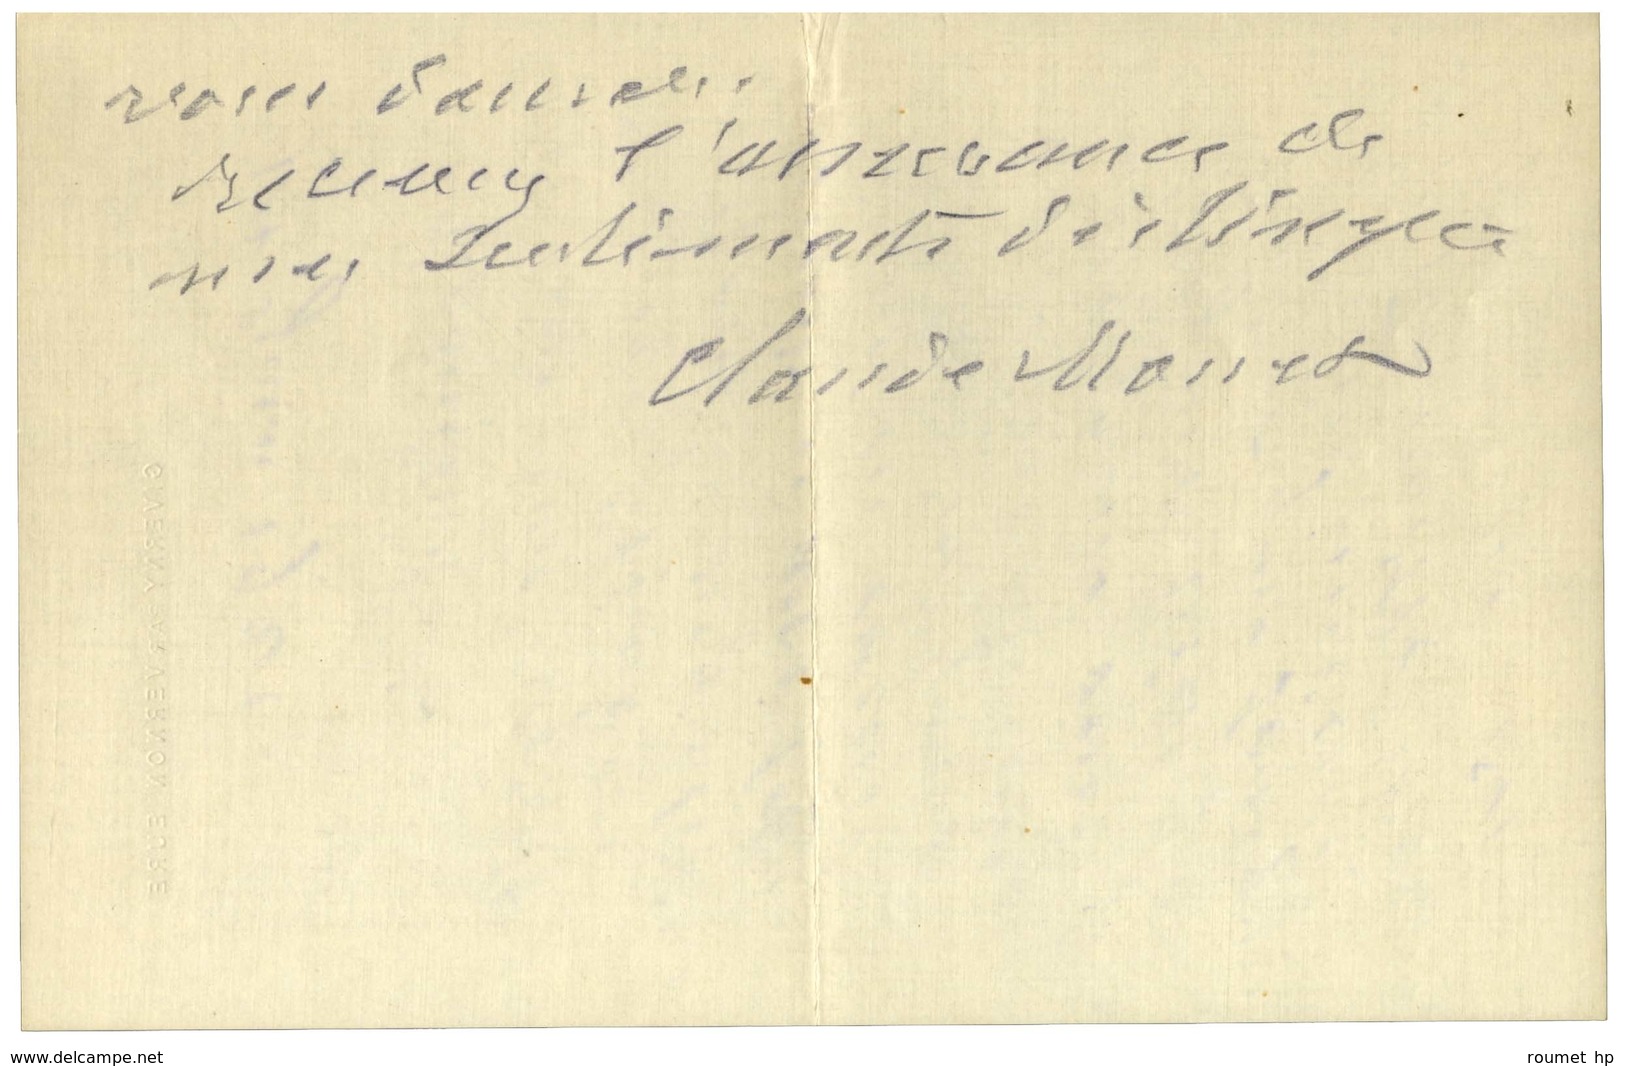 recevez l'assurance de
mes sentiments distingués
Claude Monet
GIVERNY PAR VERNON EURE
www.delcampe.net
roumet hp